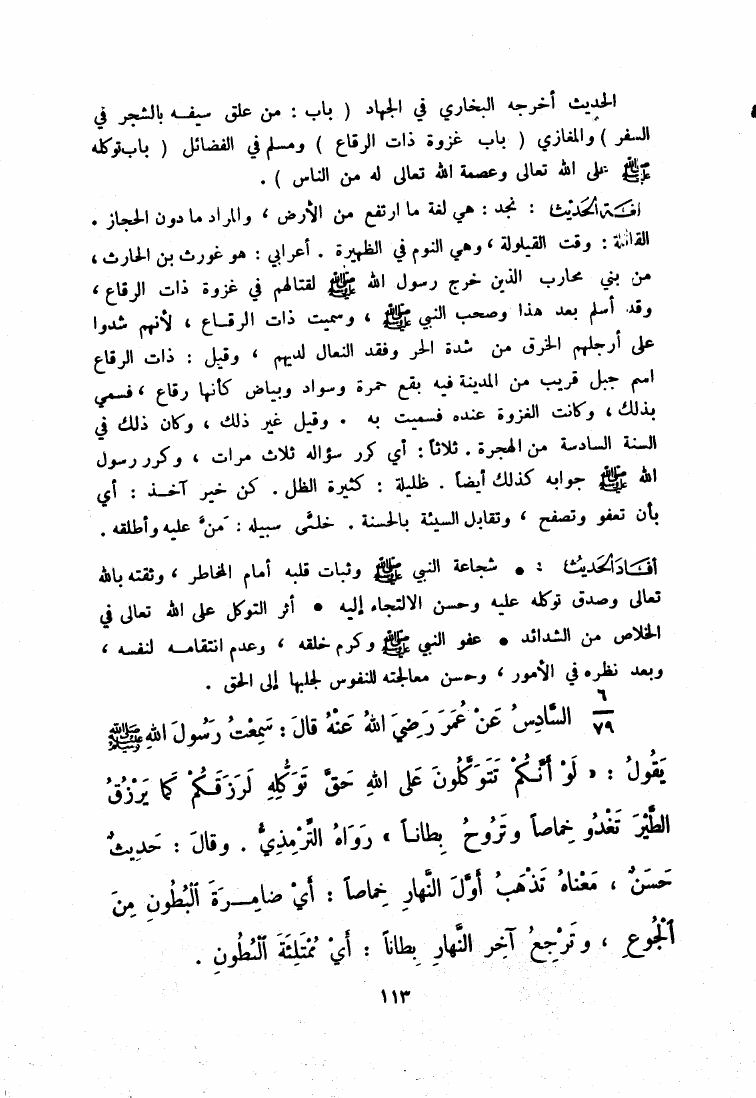 الحديث أخرجه البخاري في الجهاد ( باب : من علق سيفه بالشجر في
السفر ) والمغازي ( باب غزوة ذات الرقاع ) ومسلم في الفضائل ( باب توكله
ﷺ على الله تعالى وعصمة الله تعالى له من الناس ) .
لغة الحديث : نجد : هي لغة ما ارتفع من الأرض ، والمراد ما دون الحجاز .
القائلة : وقت القيلولة ، وهي النوم في الظهيرة . أعرابي : هو غورث بن الحارث ،
من بني محارب الذين خرج رسول الله ﷺ لقتالهم في غزوة ذات الرقاع ،
وقد أسلم بعد هذا وصحب النبي ﷺ ، وسميت ذات الرقاع ، لأنهم شدوا
على أرجلهم الخرق من شدة الحر وفقد النعال لديهم ، وقيل : ذات الرقاع
اسم جبل قريب من المدينة فيه بقع حمرة وسواد وبياض كأنها رقاع ، فسمي
بذلك ، وكانت الغزوة عنده فسميت به . وقيل غير ذلك ، وكان ذلك في
السنة السادسة من الهجرة . ثلاثاً : أي كرر سؤاله ثلاث مرات ، وكرر رسول
الله ﷺ جوابه كذلك أيضاً . ظليلة : كثيرة الظل . كن خير آخذ : أي
بأن تعفو وتصفح ، وتقابل السيئة بالحسنة . خلَّى سبيله : منَّ عليه وأطلقه .
أفاد الحديث : • شجاعة النبي ﷺ وثبات قلبه أمام المخاطر ، وثقته بالله
تعالى وصدق توكله عليه وحسن الالتجاء إليه • أثر التوكل على الله تعالى في
الخلاص من الشدائد • عفو النبي ﷺ وكرم خلقه ، وعدم انتقامه لنفسه ،
وبعد نظره في الأمور ، وحسن معالجته للنفوس لجلبها إلى الحق .
٦/٧٩ السَّادِسُ عَنْ عُمَرَ رَضِيَ اللهُ عَنْهُ قالَ : سَمِعْتُ رَسُولَ اللهِ ﷺ
يَقُولُ : « لَوْ أَنَّكُمْ تَتَوَكَّلُونَ عَلى اللهِ حَقَّ تَوَكُّلِهِ لَرَزَقَكُمْ كَما يَرْزُقُ
الطَّيْرَ تَغْدُو خِماصاً وتَرُوحُ بِطاناً » رَوَاهُ التِّرْمِذِيُّ . وقالَ : حَدِيثٌ
حَسَنٌ ، مَعْناهُ تَذْهَبُ أَوَّلَ النَّهارِ خِماصاً : أَيْ ضامِرَةَ الْبُطُونِ مِنَ
الْجُوعِ ، وتَرْجِعُ آخِرَ النَّهارِ بِطاناً : أَيْ مُمْتَلِئَةَ الْبُطُونِ .
١١٣